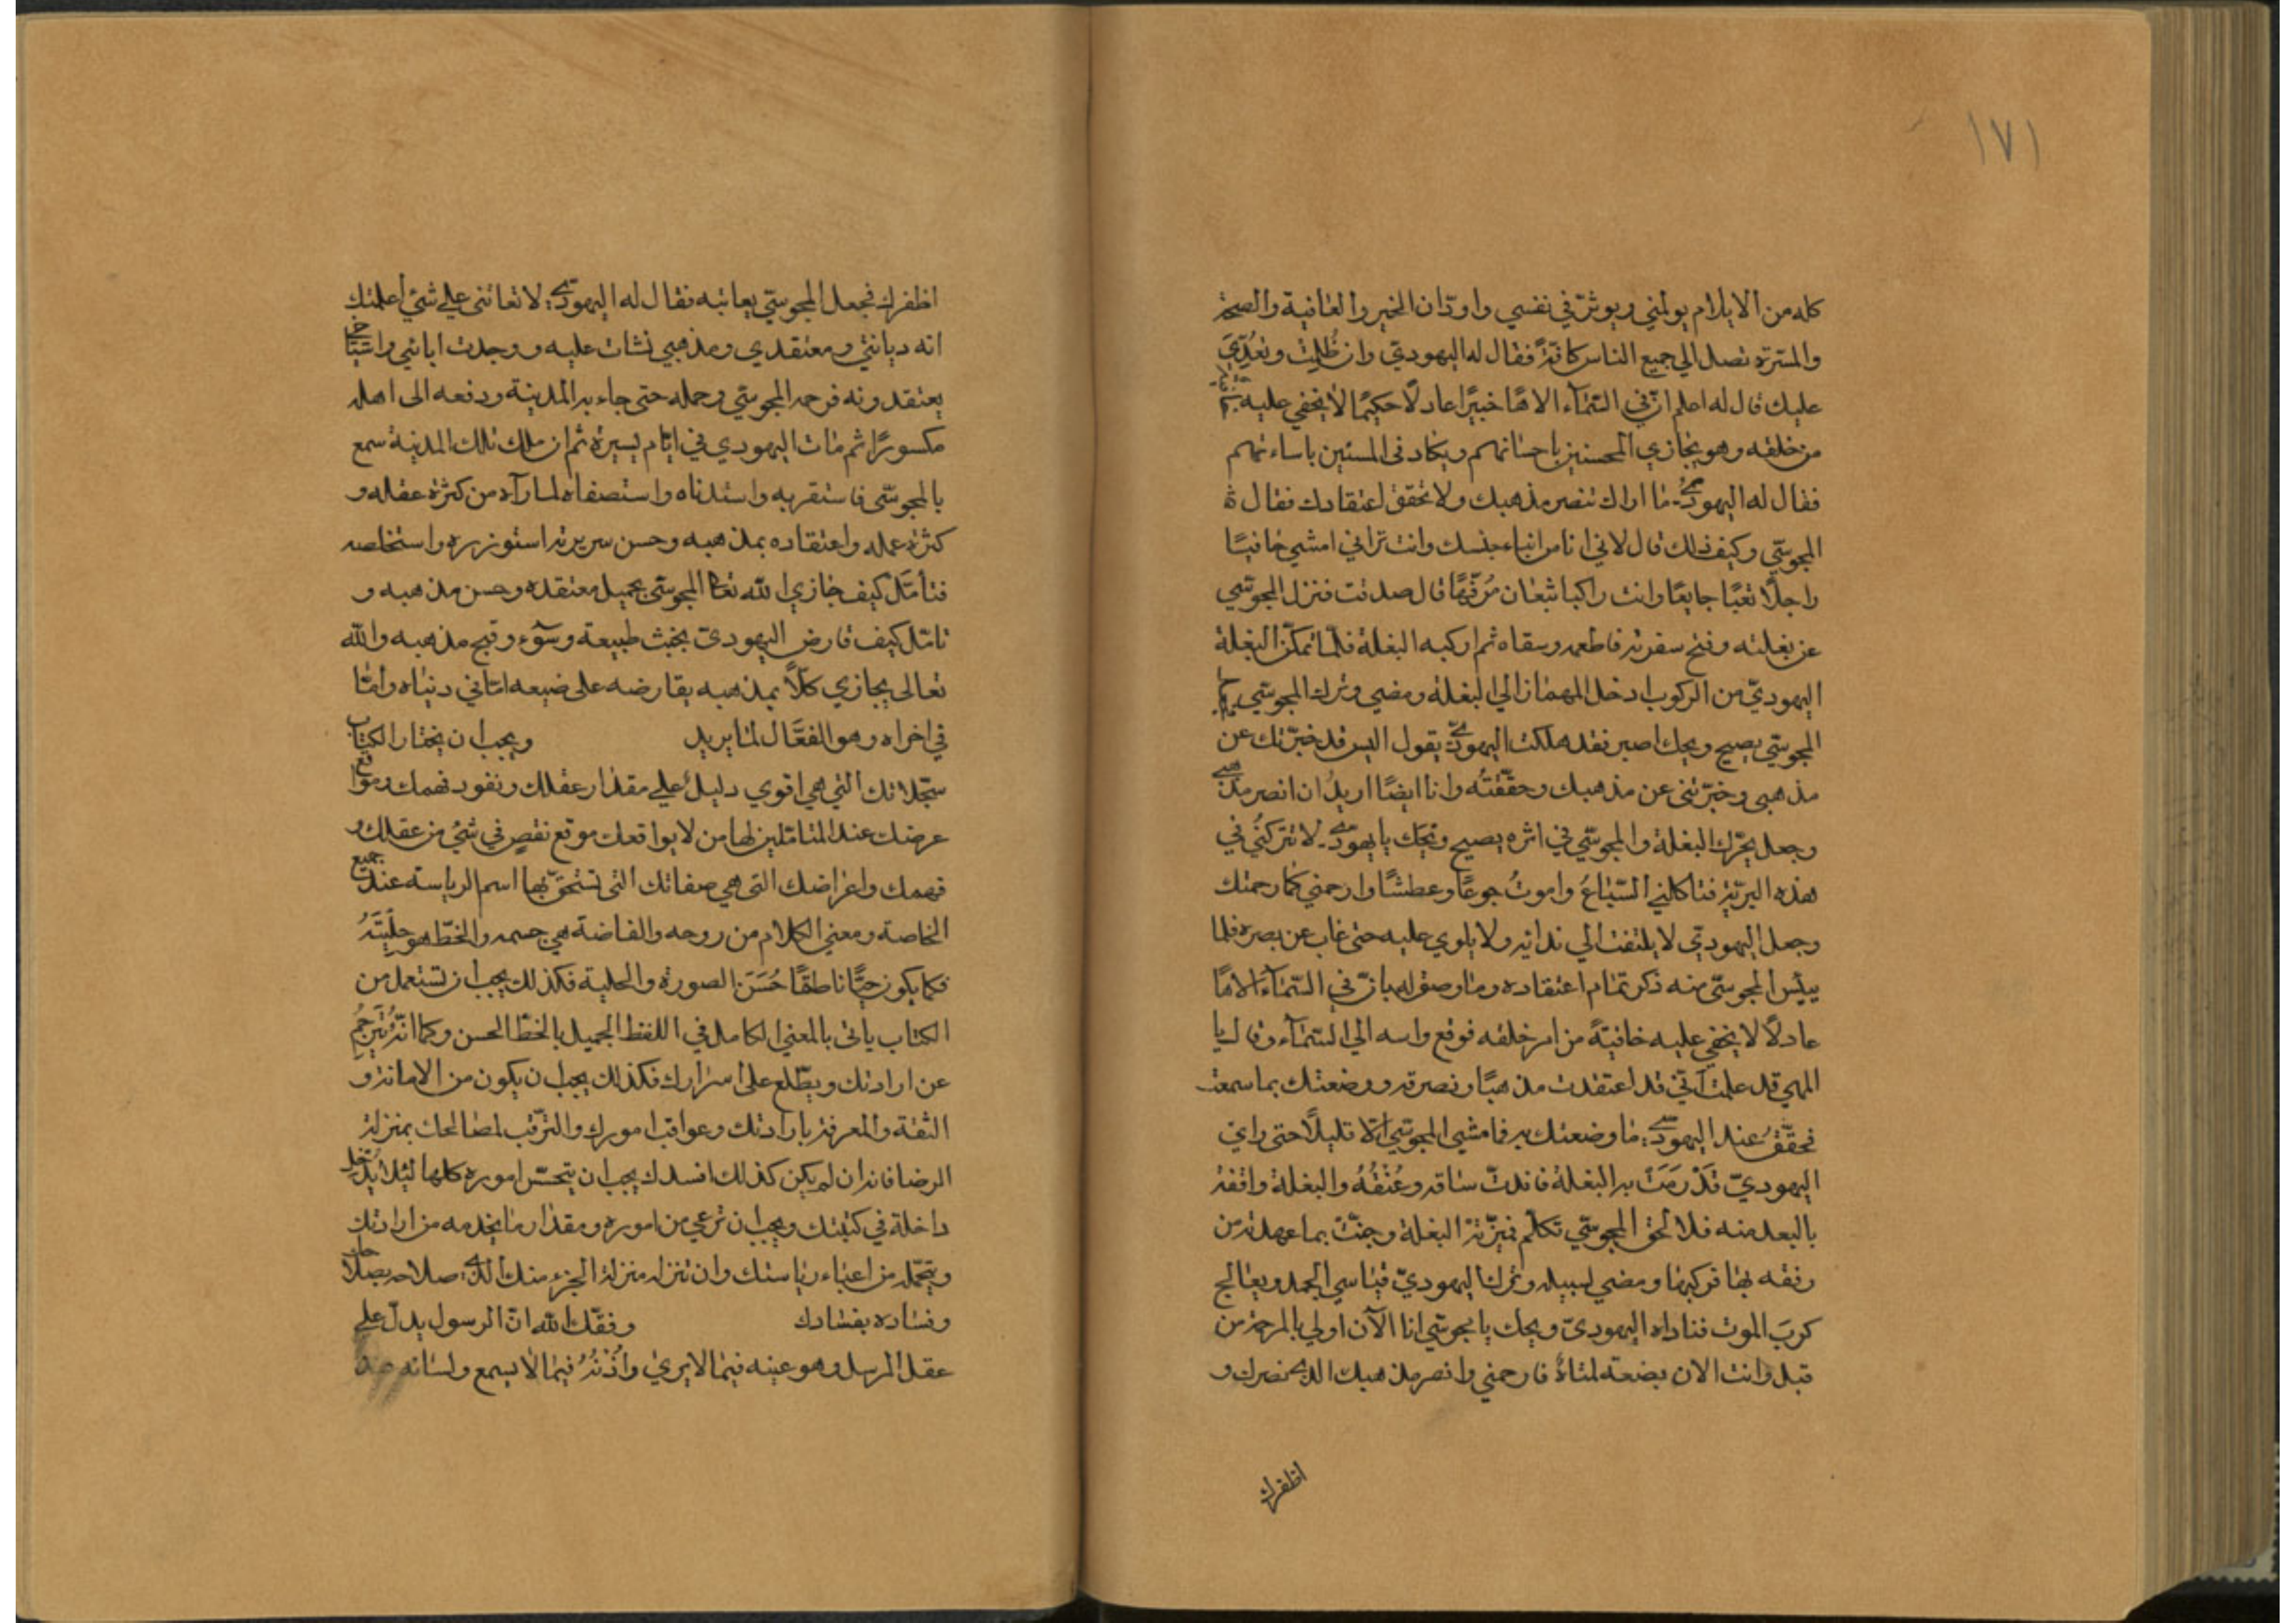 ١٧١
كله من الايلام يولمني ويوثر في نفسي واودّ ان الخير والعافية والصحة
والمسرّة تصل الي جميع الناس كافةً فقال له اليهوديّ وان ظُلِمت وتعُدّيَ
عليك قال له اعلم ان في السّماء الاهًا خبيرًا عادلًا حكيمًا لا يخفي عليه
من خلقه وهو يجازي المحسنين باحسانهم ويكاد في المسئين باساءتهم
فقال له اليهودي ما اراك تنصر مذهبك ولا تحقق اعتقادك فقال
المجوسّي وكيف ذلك قال لاني انا من ابناء جنسك وانت تراني امشي حافيًا
راجلًا تعبًا جايعًا وانت راكبا شبعان مُرفّهًا قال صدقت فنزل المجوسّي
عن بغلته وفتح سفرته فاطعمه وسقاه ثم اركبه البغلة فلمّا تمكّن البغلة
اليهوديّ من الركوب ادخل المهماز الي البغلة ومضي وترك المجوسّي
المجوسّي يصيح ويحك اصبر فقد هلكت اليهوديّ يقول اليس قد خبرّتك عن
مذهبي وخبّرتني عن مذهبك وحقّقتُه وانا ايضًا اريدُ ان انصر مذهبي
وجعل يحرّك البغلة والمجوسّي في اثره يصيح ويحَك يا يهودي لا تتركنُي في
هذه البريّة فتاكلني السّباعُ واموتُ جوعًا وعطشًا وارحمني كما رحمتك
وجعل اليهوديّ لا يلتفت الي ندائه ولا يلوي عليه حتى غاب عن بصره فلما
يئس المجوسّي منه ذكر تمام اعتقاده وما وصف له بانّ في السّماء الاهًا
عادلًا لا يخفي عليه خافيةً من امر خلقه فرفع راسه الي السّماء وقال يا
الهي قد علمت انّي قد اعتقدت مذهبًا ونصرته ووضعتك بما سمعت
فحقّقُ عند اليهودي ما وضعتك به فما مشي المجوسّي الّا قليلًا حتى راي
اليهوديّ قَدْ رَمَتْ به البغلة فاندقّ ساقه وعُنُقُهُ والبغلة واقفة
بالبعد منه فلما لحق المجوسّي تكلّم فميّزته البغلة وحنّتْ بما عهدته من
رفقه بها فركبها ومضي لسبيله وترك اليهوديّ يقاسي الجهد ويعالج
كربَ الموت فناداه اليهوديّ ويحك يا مجوسّي انا الآن اولي بالمرحمة من
قبل وانت الان فارحمني وانصر مذهبك الذي نصرك و
اظفرك
اظفرك فجعل المجوسّي يعاتبه فقال له اليهودي لا تعاتني علي شئ أعلمتك
انه ديانتي ومعتقدي ومذهبي نشات عليه ووجدت ابائي واشياخي
يعتقدونه فرحمه المجوسّي وحمله حتى جاء به المدينة ودفعه الى اهله
مكسورًا ثم مات اليهودي في ايّام يسيرة ثم ان ملك تلك المدينة سمع
بالمجوسّي فاستقربه واستدناه واستصفاه لما رآه من كثرة عقله و
كثرة عمله واعتقاده بمذهبه وحسن سريرته استوزره واستخلصه
فتأمّل كيف جازي الله تعا المجوسّي بجميل معتقده وحسن مذهبه و
تامّل كيف قارض اليهوديّ بخبث طبيعة وسوٓء وقبح مذهبه والله
تعالى يجازي كلّاً بمذهبه يقارضه على ضيعه امّا في دنياه وأمّا
في اخراه وهو الفعَّال لما يريد ويجب ان يختار الكتاب
سجّلاتك التي هي اقوي دليلُ علي مقدار عقلك ونفود فهمك وموقع
عرضك عند المتامّلين لها من لا يواقعك موقع نقصٍ في شئُ من عقلك و
فهمك واغراضك التي هي صفاتك التي تستحقّ بها اسم الرياسة عند جميع
الخاصة ومعني الكلام من روحه والفاضة هي جسمه والخطّ هو حِلْيَتَهُ
فكما يكون حيًّا ناطقًا حَسَنَ الصورة والحلية فكذلك يجب ان تستعمل من
الكتاب ياتى بالمعني الكامل في اللفظ الجميل بالخطّ الحسن وكما انّهُ يُتَرجِمُ
عن ارادتك ويطّلع علي اسرارك فكذلك يجب ان يكون من الامانة و
الثقة والمعرفة بارادتك وعواقب امورك والترقّب لمصالحك بمنزلة
الرضا فانه ان لم يكن كذلك افسدك يجب ان يتحسّس اموره كلها لئلا يدخل
داخلة في كتبتك ويجب ان ترعي من اموره ومقدار ما يخدمه من ارادتك
ويتحمّله من اعباء رياستك وان تنزله منزلة الجزء منك الذي صلاحه بصلاحك
وفساده بفسادك وفقّك الله انّ الرسول يدلّ علي
عقل المرسل وهو عينه فيما لا يري وأُذْنُهُ فيما لا يسمع ولسانه